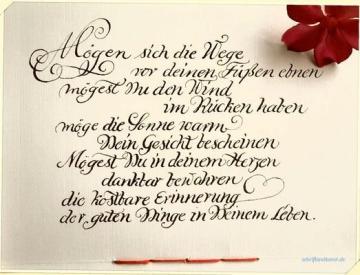 Mögen sich die Wege
vor deinen Füßen ebnen
mögest Du den Wind
im Rücken haben
möge die Sonne warm
Dein Gesicht bescheinen
Mögest Du in deinem Herzen
dankbar bewahren
die kostbare Erinnerung
der guten Dinge in Deinem Leben.
schriftundkunst.de